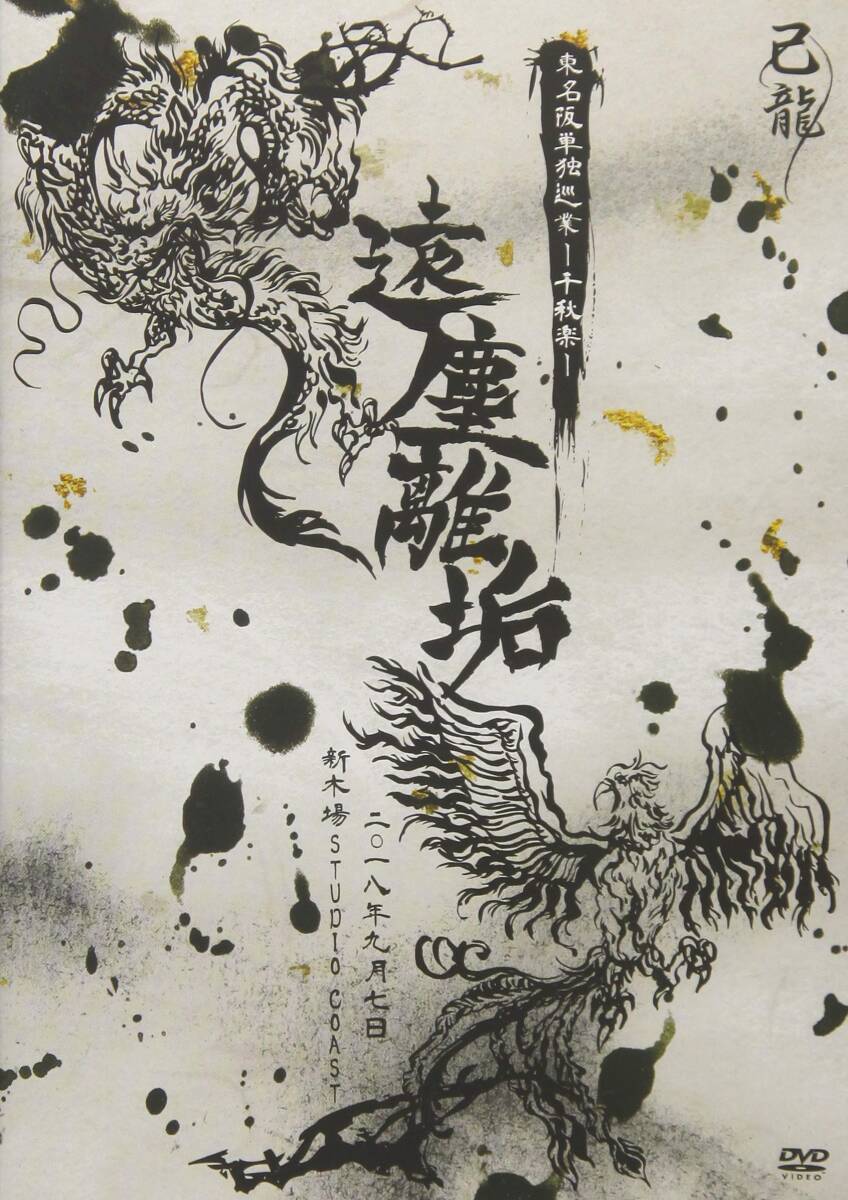 己龍
東名阪単独巡業―千秋楽―
遠塵離垢
二〇一八年九月七日
新木場 STUDIO COAST
DVD
VIDEO